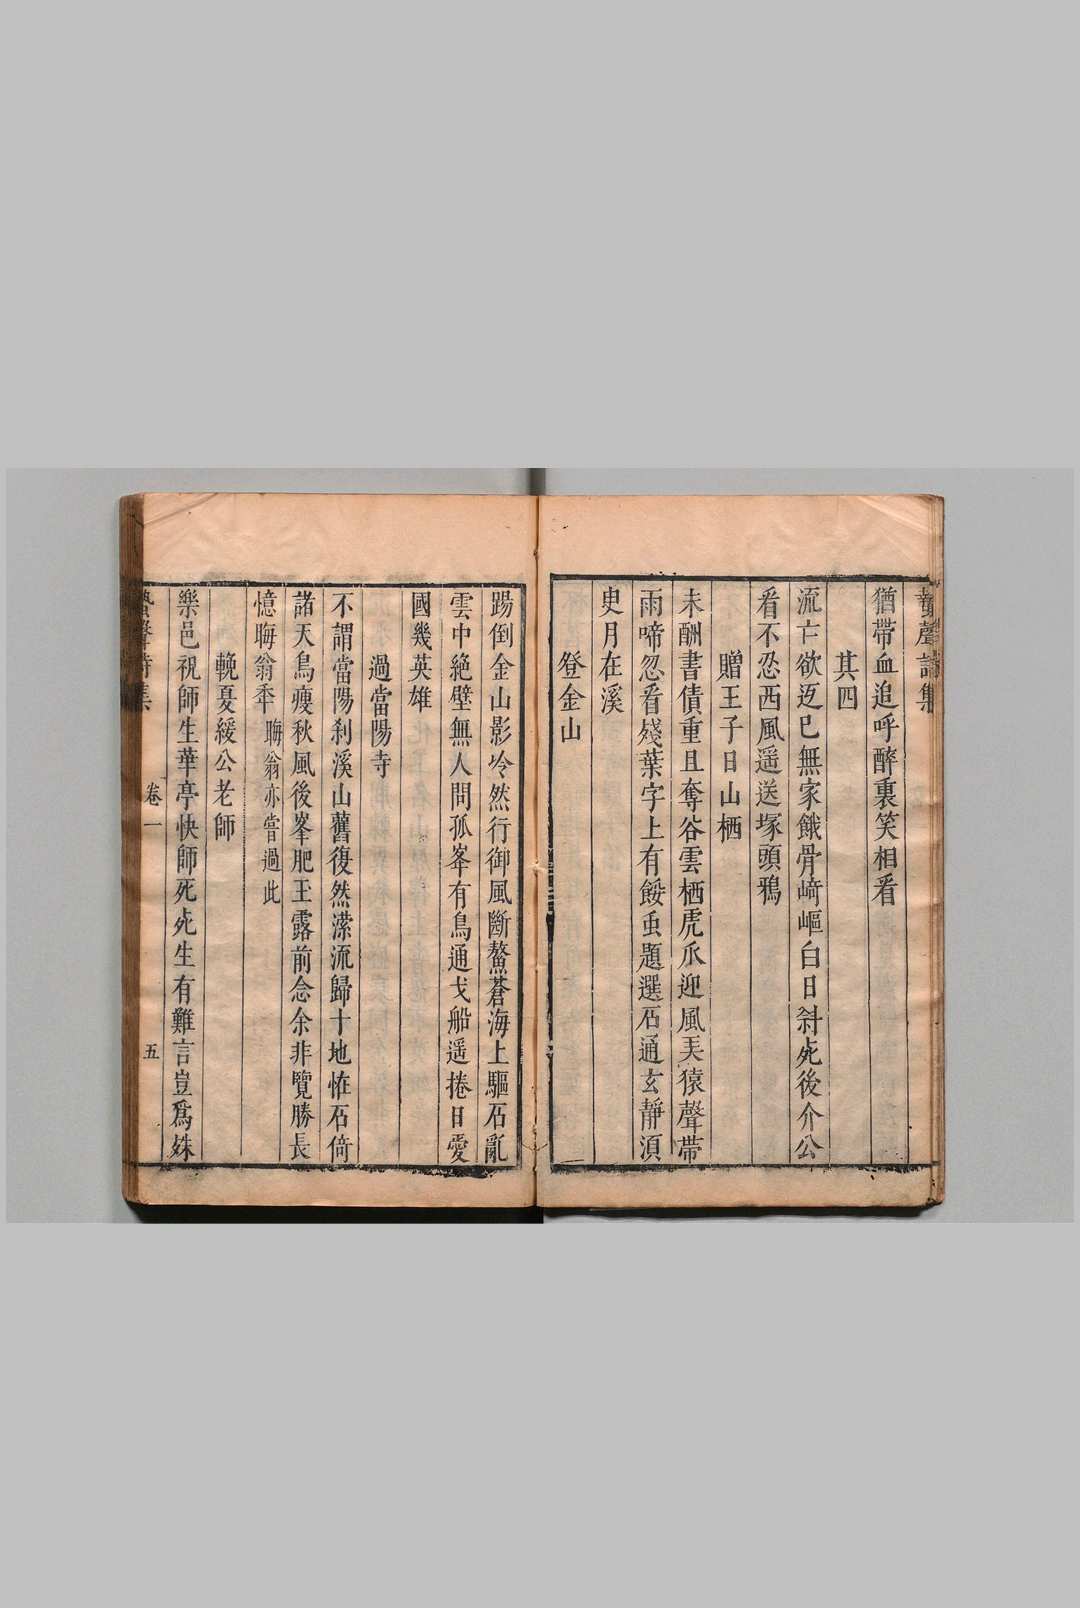 蟄聲詩集
猶帶血追呼醉裏笑相看
其四
流亡欲返已無家餓骨﨑嶇白日斜死後介公
看不忍西風遥送塚頭鴉
贈王子日山栖
未酬書債重且奪谷雲栖虎爪迎風天猿聲帶
雨啼忽看殘葉字上有餒虫題選石通玄靜湏
叟月在溪
登金山
踢倒金山影泠然行御風斷鰲蒼海上驅石亂
雲中絶壁無人問孤峯有鳥通戈船遥捲日愛
國幾英雄
過當陽寺
不謂當陽刹溪山舊復然濚流歸十地恠石倚
諸天鳥瘦秋風後峯肥玉露前念余非覽勝長
憶晦翁秊 晦翁亦嘗過此
輓憂緩公老師
樂邑祝師生華亭快師死死生有難言豈爲姝
詩集
卷一
五